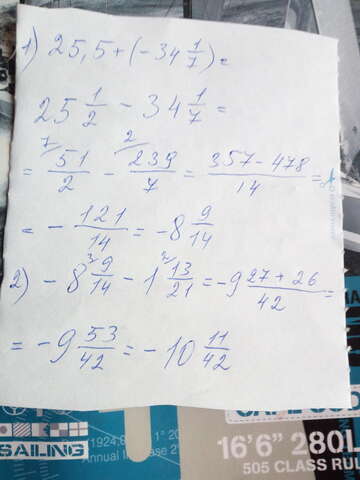 1) 25,5 + (- 34 1/7) =
25 1/2 - 34 1/7 =
7 2
= 51/2 - 239/7 = (357 - 478)/14 =
= - 121/14 = - 8 9/14
2) - 8 9/14 - 1 13/21 = - 9 (27 + 26)/42 =
= - 9 53/42 = - 10 11/42
SAILING
Annual Increase 2
16'6" 280L
505 CLASS RUL